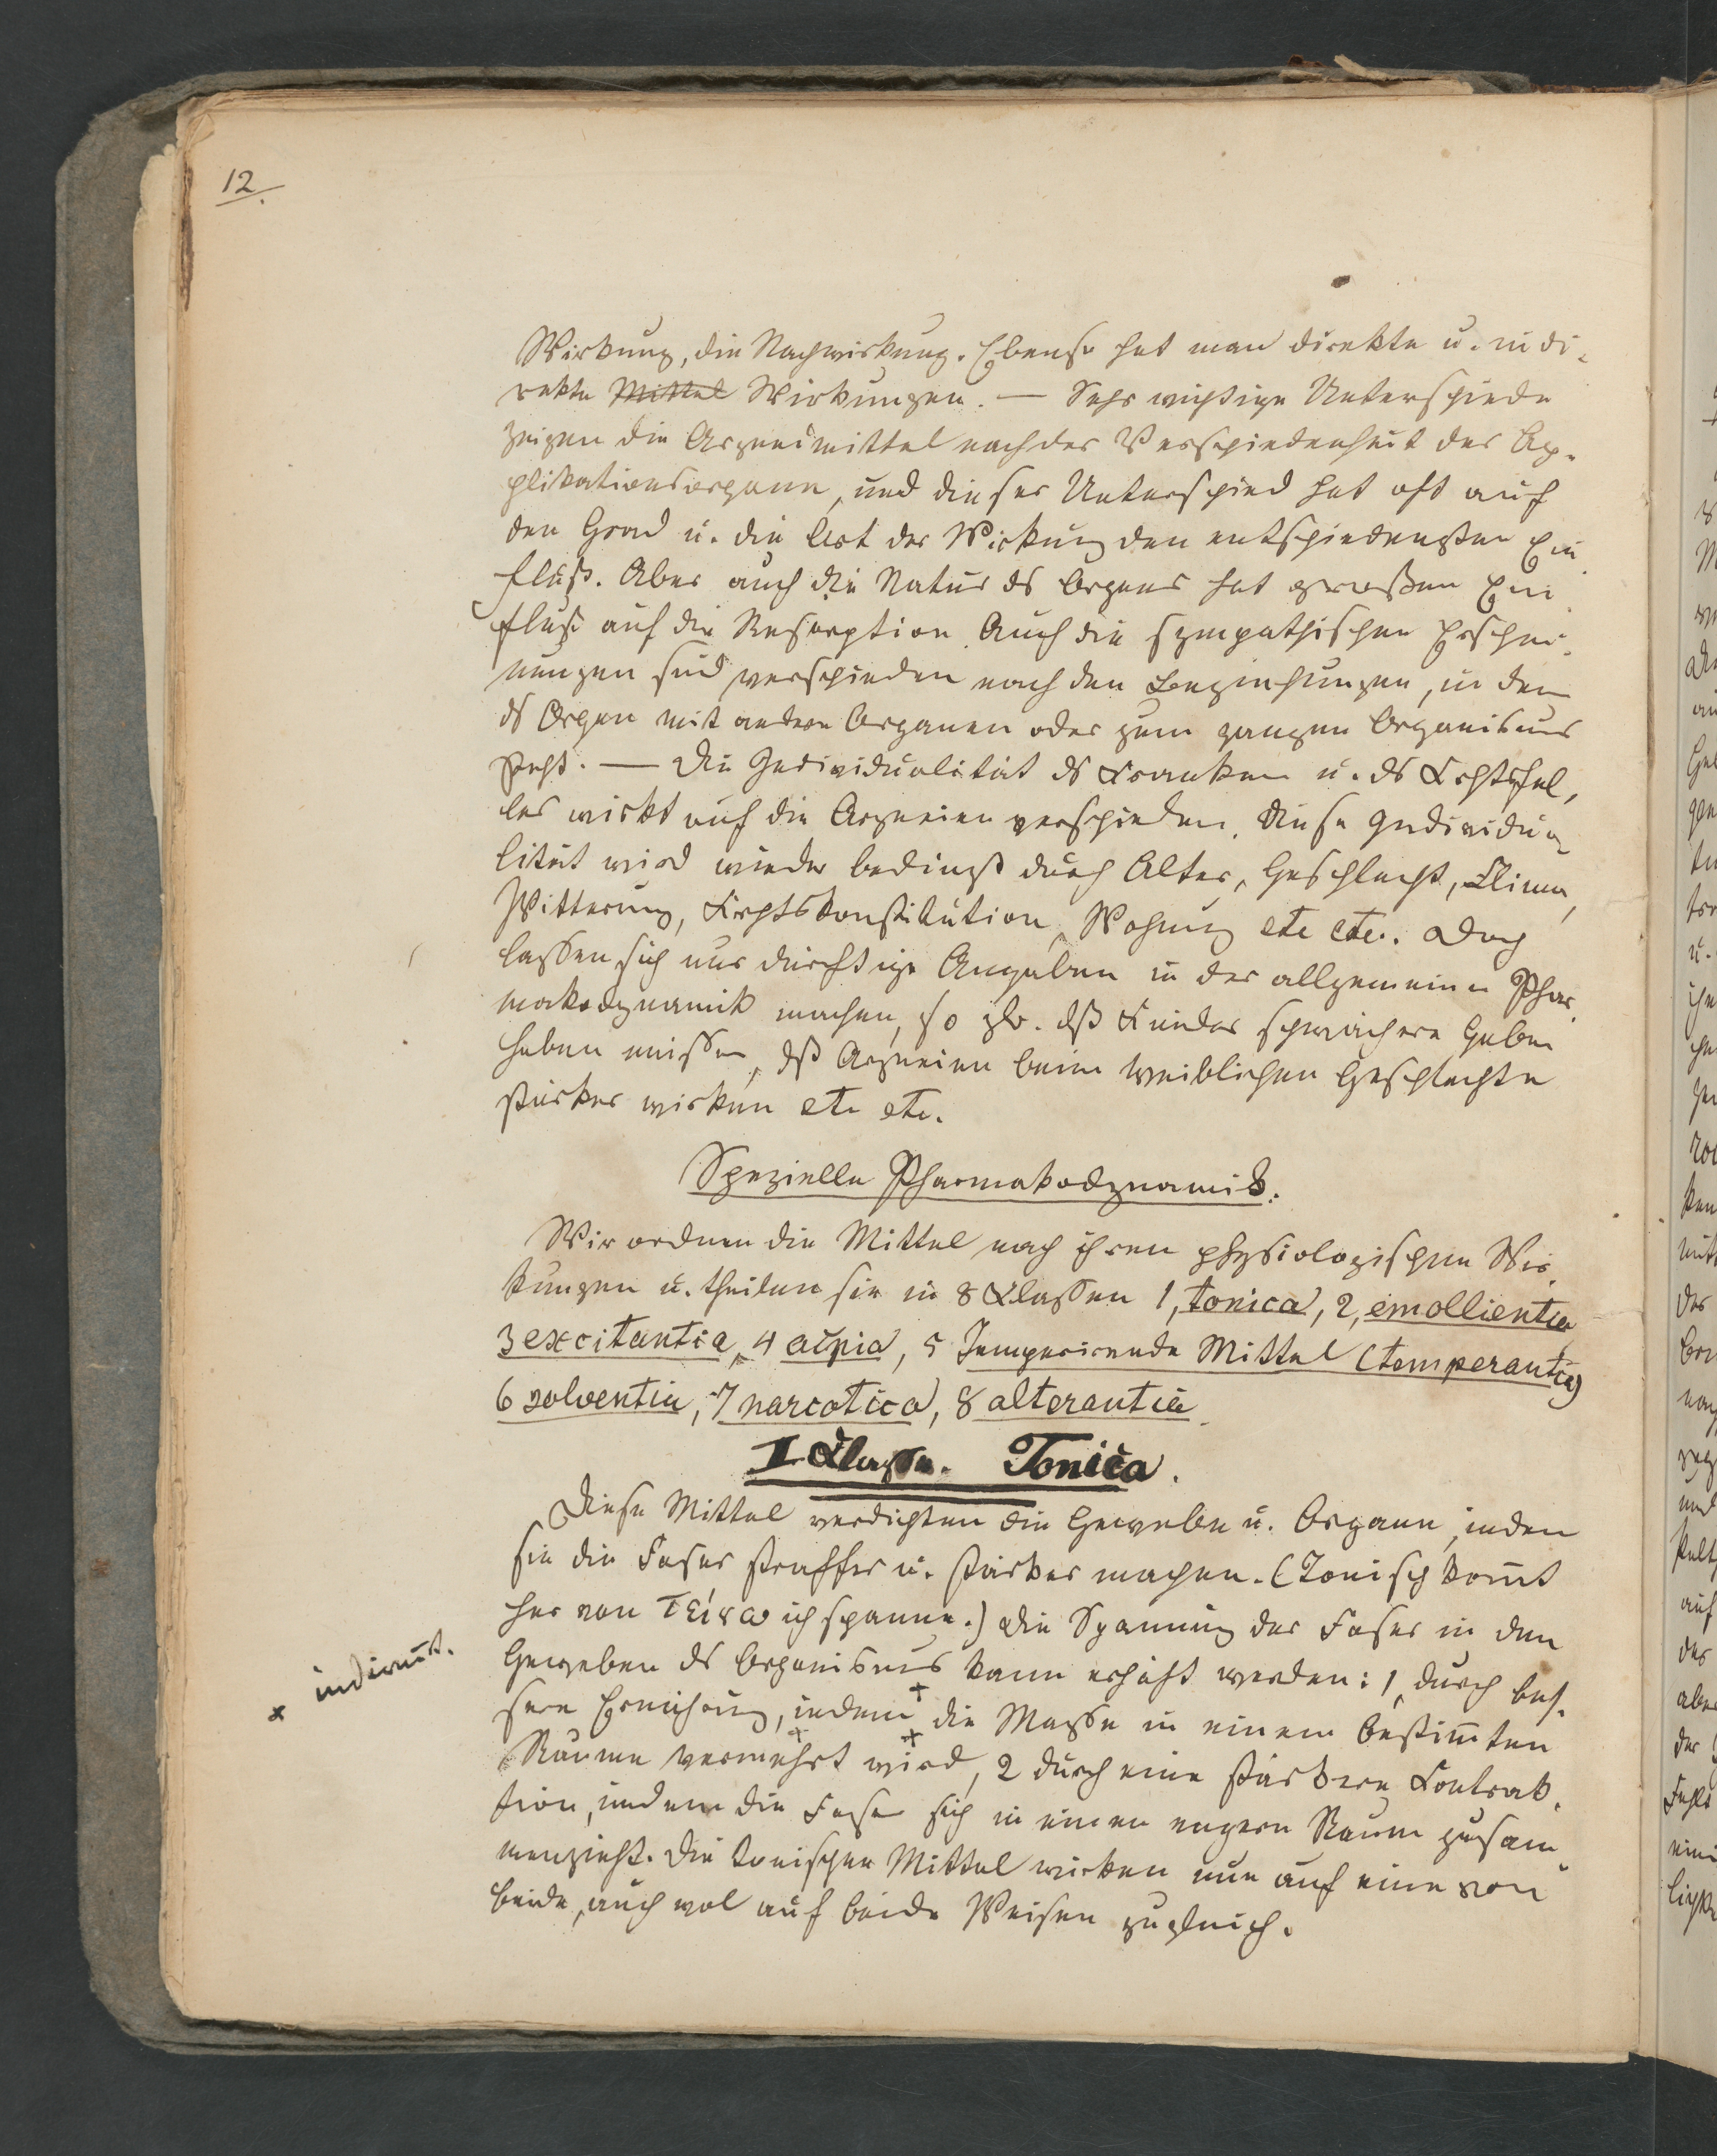 12.
Wirkung, die Nachwirkung. Ebenso hat man direkte u. indi-
rekte Mittel Wirkungen. — Sehr wichtige Unterschiede
zeigen die Arzneimittel nach der Verschiedenheit der Ap-
plikationsorgane, und dieser Unterschied hat oft auf
den Grad u. die Art der Wirkung den entschiedensten Ein
fluß. Aber auch die Natur ds Organs hat großen Ein
fluß auf die Resorption. Auch die sympathischen Erschei-
nungen sind verschieden nach den Beziehungen, in den
ds Organ mit andern Organen oder zum ganzen Organismus
steht. — Die Individualität ds Kranken u. ds
les wirkt auf die Arzneien verschieden. Diese Individua-
lität wird wieder bedingt durch Alter, Geschlecht, Clima,
Witterung, Wohnung etc etc. Doch
lassen sich nur dürftige Angaben in der allgemeinen Phar
makodynamik machen, so zb. dß Kinder schwächere Gaben
haben müssen, dß Arzneien beim weiblichen Geschlechte
stärker wirken etc etc.
Spezielle Pharmakodynamik.
Wir ordnen die Mittel nach ihren physiologischen Wir
kungen u. theilen sie in 8 Klassen 1, tonica, 2, emollientia
3 excitantia, 4 acria, 5 Temperirende Mittel (temperantia)
6 solventia, 7 narcotica, 8 alterantia.
I Klasse. Tonica.
Diese Mittel verdichten die Gewebe u. Organe, indem
sie die Faser straffer u. stärker machen. (Tonisch kom̄t
her von τείνω ich spanne.) Die Spannung der Faser in den
Geweben ds Organismus kann erhöht werden: 1, durch bes-
sere Ernährung, indem + die Masse in einem bestim̄ten
Raume vermehrt wird, 2 durch eine stärkere Kontrak-
tion, indem die Faser sich in einen engern Raum zusam
menzieht. Die tonischen Mittel wirken nun auf eine von
beide, auch wol auf beide Weisen zugleich.